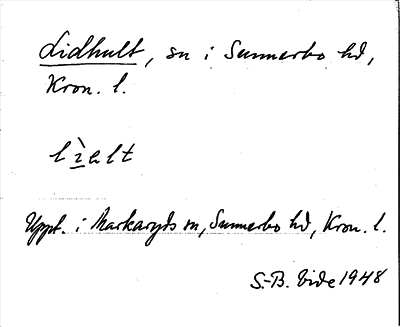 Lidhult, sn i Sunnerbo hd,
Kron. l.
lìəlt
Uppt. i Markaryds sn, Sunnerbo hd, Kron. l.
S.-B. Vide 1948